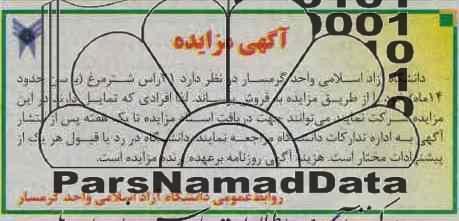 آگهی مزایده
دانشگاه آزاد اسلامی واحد گرمسار در نظر دارد راس شترمرغ با سن حدود
۱۴ماه را از طریق مزایده به فروش برساند. لذا افرادی که تمایل دارند در این
مزایده شرکت نمایند می‌توانند جهت دریافت اسناد مزایده تا یک هفته پس از انتشار
آگهی به اداره تدارکات دانشگاه مراجعه نمایند. دانشگاه در رد یا قبول هر یک از
پیشنهادات مختار است. هزینه آگهی روزنامه برعهده برنده مزایده است.
روابط عمومی دانشگاه آزاد اسلامی واحد گرمسار
ParsNamadData
0001
10